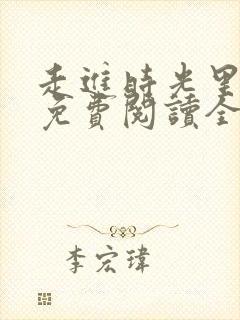 走進時光里
免費閱讀全
李宏瑋